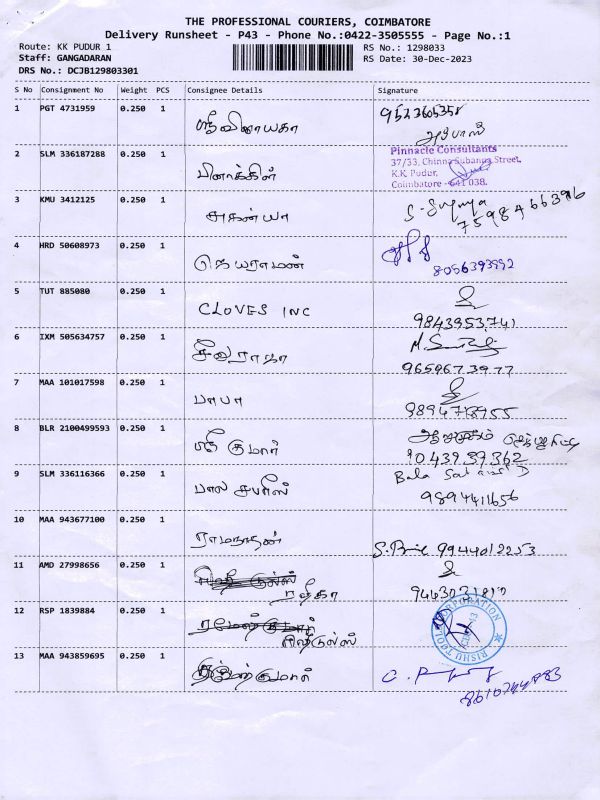 THE PROFESSIONAL COURIERS, COIMBATORE
Delivery Runsheet - P43 - Phone No.:0422-3505555 - Page No.:1
Route: KK PUDUR 1
RS No.: 1298033
Staff: GANGADARAN
RS Date: 30-Dec-2023
DRS No.: DCJB129803301
S No Consignment No Weight PCS Consignee Details Signature
1 PGT 4731959 0.250 1 ஸ்ரீ விநாயகா
2 SLM 336187288 0.250 1 பினாக்கிள்
Pinnacle Consultants
37/33, Chinna Subanna Street,
K.K Pudur,
Coimbatore - 641 038.
3 KMU 3412125 0.250 1 அகன்யா S-Suganya
7598466396
4 HRD 50608973 0.250 1 ஜெயராமன்
8056393992
5 TUT 885080 0.250 1 CLOVES INC
9843953741
6 IXM 505634757 0.250 1
9659673977
7 MAA 101017598 0.250 1 பாபா
8 BLR 2100499593 0.250 1 ஸ்ரீ குமார் ஆறுமுகம்
9043939362
9 SLM 336116366 0.250 1 பால சபரீஸ் Bala
9894411656
10 MAA 943677100 0.250 1 ராமநாதன்
9944012253
11 AMD 27998656 0.250 1
12 RSP 1839884 0.250 1
RISHU TOOL CORPORATION
13 MAA 943859695 0.250 1